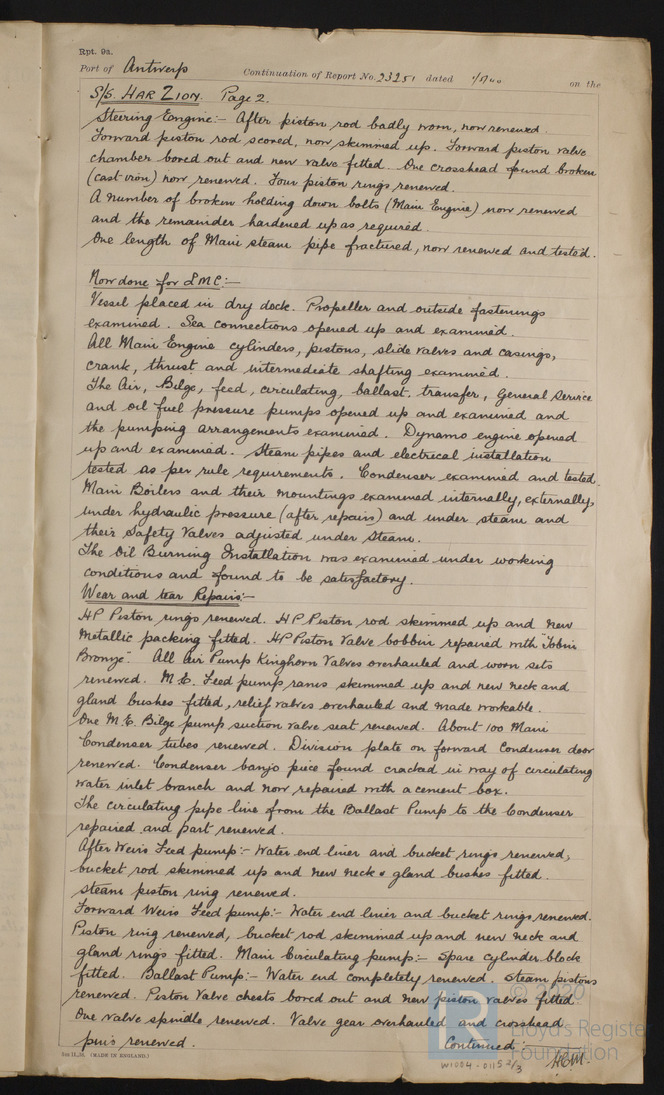 Rpt. 9a.
Port of Antwerp Continuation of Report No. 23251 dated on the
S/S. HAR ZION. Page 2.
Steering Engine:- After piston rod badly worn, now renewed.
Forward piston rod scored, now skimmed up. Forward piston valve
chamber bored out and new valve fitted. One crosshead found broken
(cast iron) now renewed. Four piston rings renewed.
A number of broken holding down bolts (Main Engine) now renewed
and the remainder hardened up as required.
One length of Main steam pipe fractured, now renewed and tested.
Now done for LMC:-
Vessel placed in dry dock. Propeller and outside fastenings
examined. Sea connections opened up and examined.
All Main Engine cylinders, pistons, slide valves and casings,
crank, thrust and intermediate shafting examined.
The Air, Bilge, feed, circulating, ballast, transfer, General Service
and oil fuel pressure pumps opened up and examined and
the pumping arrangements examined. Dynamo engine opened
up and examined. Steam pipes and electrical installation
tested as per rule requirements. Condenser examined and tested.
Main Boilers and their mountings examined internally, externally,
under hydraulic pressure (after repairs) and under steam and
their Safety Valves adjusted under Steam.
The Oil Burning Installation was examined under working
conditions and found to be satisfactory.
Wear and tear Repairs:-
HP Piston rings renewed. HP Piston rod skimmed up and new
metallic packing fitted. HP Piston Valve bobbin repaired with "Tobin
Bronze". All Air Pump Kinghorn Valves overhauled and worn sets
renewed. M.E. Feed pump rams skimmed up and new neck and
gland bushes fitted, relief valves overhauled and made workable.
One M.E. Bilge pump suction valve seat renewed. About 100 Main
Condenser tubes renewed. Division plate on forward Condenser door
renewed. Condenser banjo piece found cracked in way of circulating
water inlet branch and now repaired with a cement box.
The circulating pipe line from the Ballast Pump to the Condenser
repaired and part renewed.
After Weirs Feed pump:- Water end liner and bucket rings renewed,
bucket rod skimmed up and new neck & gland bushes fitted.
steam piston ring renewed.
Forward Weirs Feed pump:- Water end liner and bucket rings renewed.
Piston ring renewed, bucket rod skimmed up and new neck and
gland rings fitted. Main Circulating pump:- Spare cylinder block
fitted. Ballast Pump:- Water end completely renewed. Steam pistons
renewed. Piston Valve chests bored out and new piston valves fitted.
One valve spindle renewed. Valve gear overhauled and crosshead
pins renewed. Continued:-
(MADE IN ENGLAND.)
W1004-0115 2/3
© 2020
Lloyd's Register
Foundation